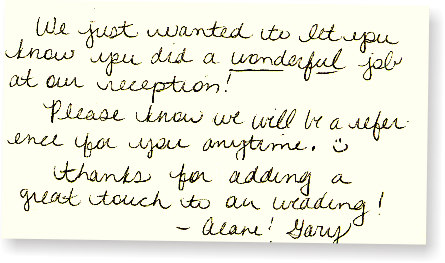 We just wanted to let you
know you did a wonderful job
at our reception!
Please know we will be a refer
ence for you anytime. ☺
Thanks for adding a
great touch to our wedding!
- Alane! Gary